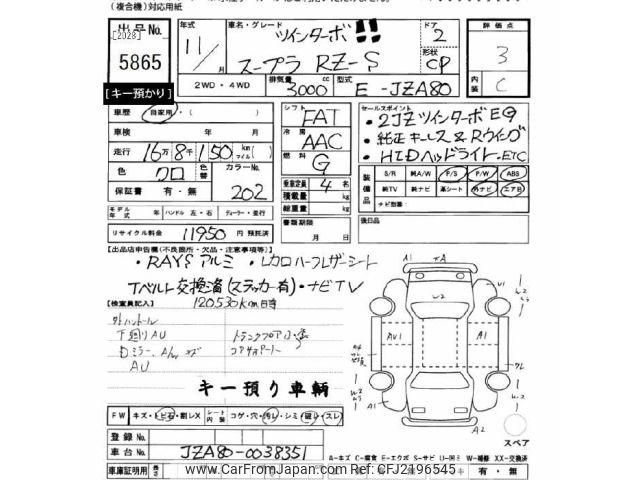 (複合機)対応用紙
出品No.
[2028]
5865
[キー預かり]
年式
11/
月
車名・グレード
ツインターボ!!
スープラ RZ-S
ドア
2
形状
CP
評価点
3
内装
C
2WD・4WD
排気量
3000
cc
型式
E -JZA80
車歴
自家用・( )
車検
年 月
走行
16万8千150
km
マイル
色
クロ
色替
カラーNo.
202
保証書
有・無
シフト
FAT
冷房
AAC
燃料
G
乗車定員
4
名
積載量
kg
総重量
kg
書類期限
月 日
セールスポイント
・2JZツインターボEG
・純正キーレス&Rウイング
・HIDヘッドライト・ETC
装備品
S/R 純A/W P/S P/W ABS
純TV 純ナビ 革シート 外ナビ エアB
ナビ型番:
後日品
モデル年式 年 ハンドル 左・右 ディーラー・並行
リサイクル料金 11950 円 預託済
[出品店申告欄(不良箇所・欠品・注意事項等)]
・RAYSアルミ ・レカロハーフレザーシート
Tベルト交換済(ステッカー有)・ナビTV
120530km時
[検査員記入]
下廻りAU
Dミラー、A/w キズ
AU
トランクフロア
コアサポート
キー預り車輌
FW キズ・トビ石・割レX シート内張 コゲ・穴・汚レ・シミ・破レ・スレ
登録No.
車台No. JZA80-0038351
車庫証明用
A1
TA
U1
W2
AU1
AU1
A1
A2
スペア
A-キズ C-腐食 E-エクボ S-サビ U-凹ミ W-補修 XX-交換済
有・無
www.CarFromJapan.com Ref:CFJ2196545